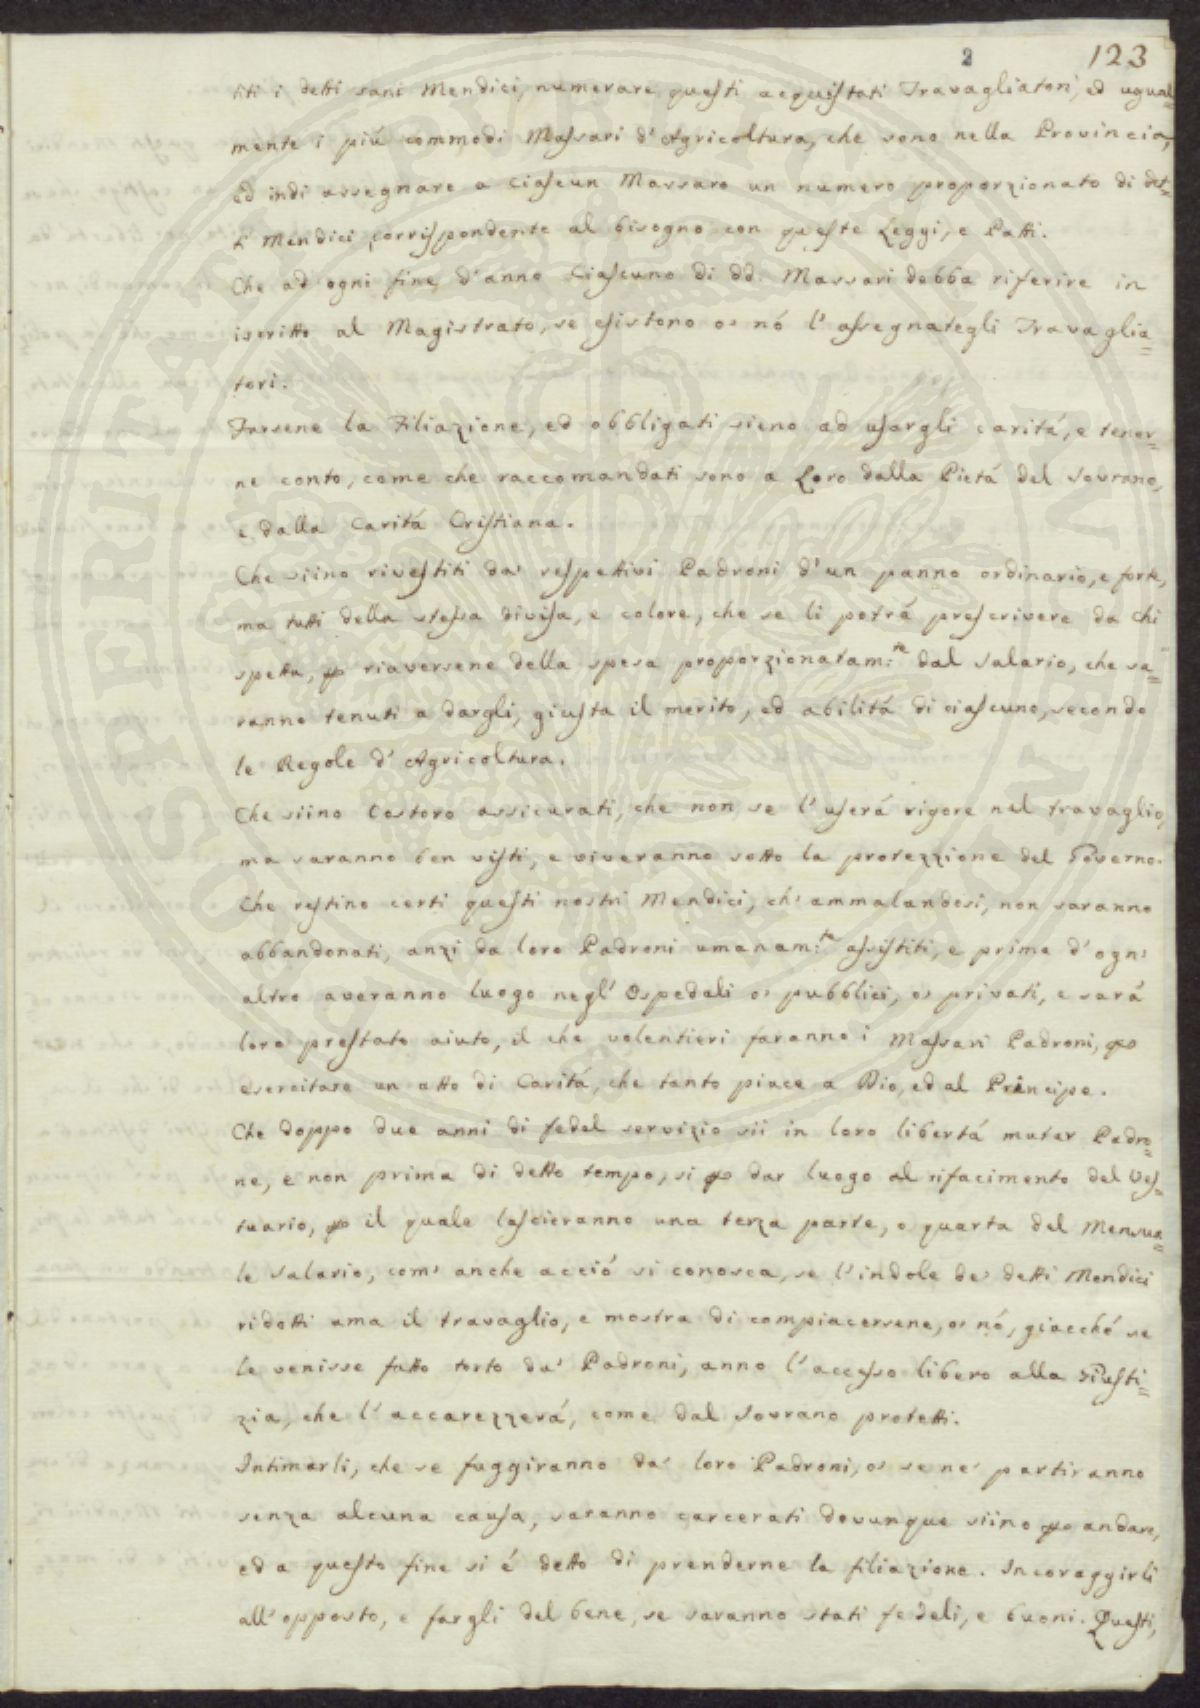 2 123
titi i detti sani Mendici, numerare questi acquistati Travagliatori, ed ugual=
mente i più commodi Massari d'Agricoltura, che sono nella Provincia,
ed indi assegnare a ciascun Massaro un numero proporzionato di det=
ti Mendici corrispondente al bisogno con queste Leggi, e Patti.
Che ad ogni fine d'anno Ciascuno di dd. Massari debba riferire in
iscritto al Magistrato, se esistono o' nó l'assegnategli Travaglia=
tori.
Farsene la Filiazione, ed obbligati sieno ad usargli caritá, e tener=
ne conto, come che raccomandati sono a Loro dalla Pietá del Sovrano,
e dalla Caritá Cristiana.
Che siino rivestiti da' respettivi Padroni d'un panno ordinario, e forte,
ma tutti della stessa divisa, e colore, che se li potrá prescrivere da chi
spetta, per riaversene della spesa proporzionatam:te dal salario, che sa=
ranno tenuti a dargli, giusta il merito, ed abilitá di ciascuno, secondo
le Regole d'Agricoltura.
Che siino Costoro assicurati, che non se l'userá rigore nel travaglio,
ma saranno ben visti, e viveranno sotto la protezzione del Governo.
Che restino certi questi nostri Mendici, ch'ammalandosi, non saranno
abbandonati, anzi da loro Padroni umanam:te assistiti, e prima d'ogn'
altro averanno luogo negl'Ospedali o' pubblici, o' privati, e sará
loro prestato aiuto, il che volentieri faranno i Massari Padroni, per
esercitare un atto di Caritá, che tanto piace a Dio, ed al Principe.
Che doppo due anni di fedel servizio sii in loro libertá mutar Padro=
ne, e non prima di detto tempo, si per dar luogo al rifacimento del Ves=
tuario, per il quale lascieranno una terza parte, o quarta del Mensua=
le salario, com'anche acció si conosca, se l'indole de' detti Mendici
ridotti ama il travaglio, e mostra di compiacersene, o' nó, giacché se
le venisse fatto torto da' Padroni, anno l'accesso libero alla Giusti=
zia, che l'accarezzerá, come dal Sovrano protetti.
Intimarli, che se fuggiranno da' loro Padroni, o' se ne' partiranno
senza alcuna causa, saranno carcerati dovunque siino per andare,
ed a questo fine si é detto di prenderne la filiazione. Incoraggirli
all'opposto, e fargli del bene, se saranno stati fedeli, e buoni. Questi,